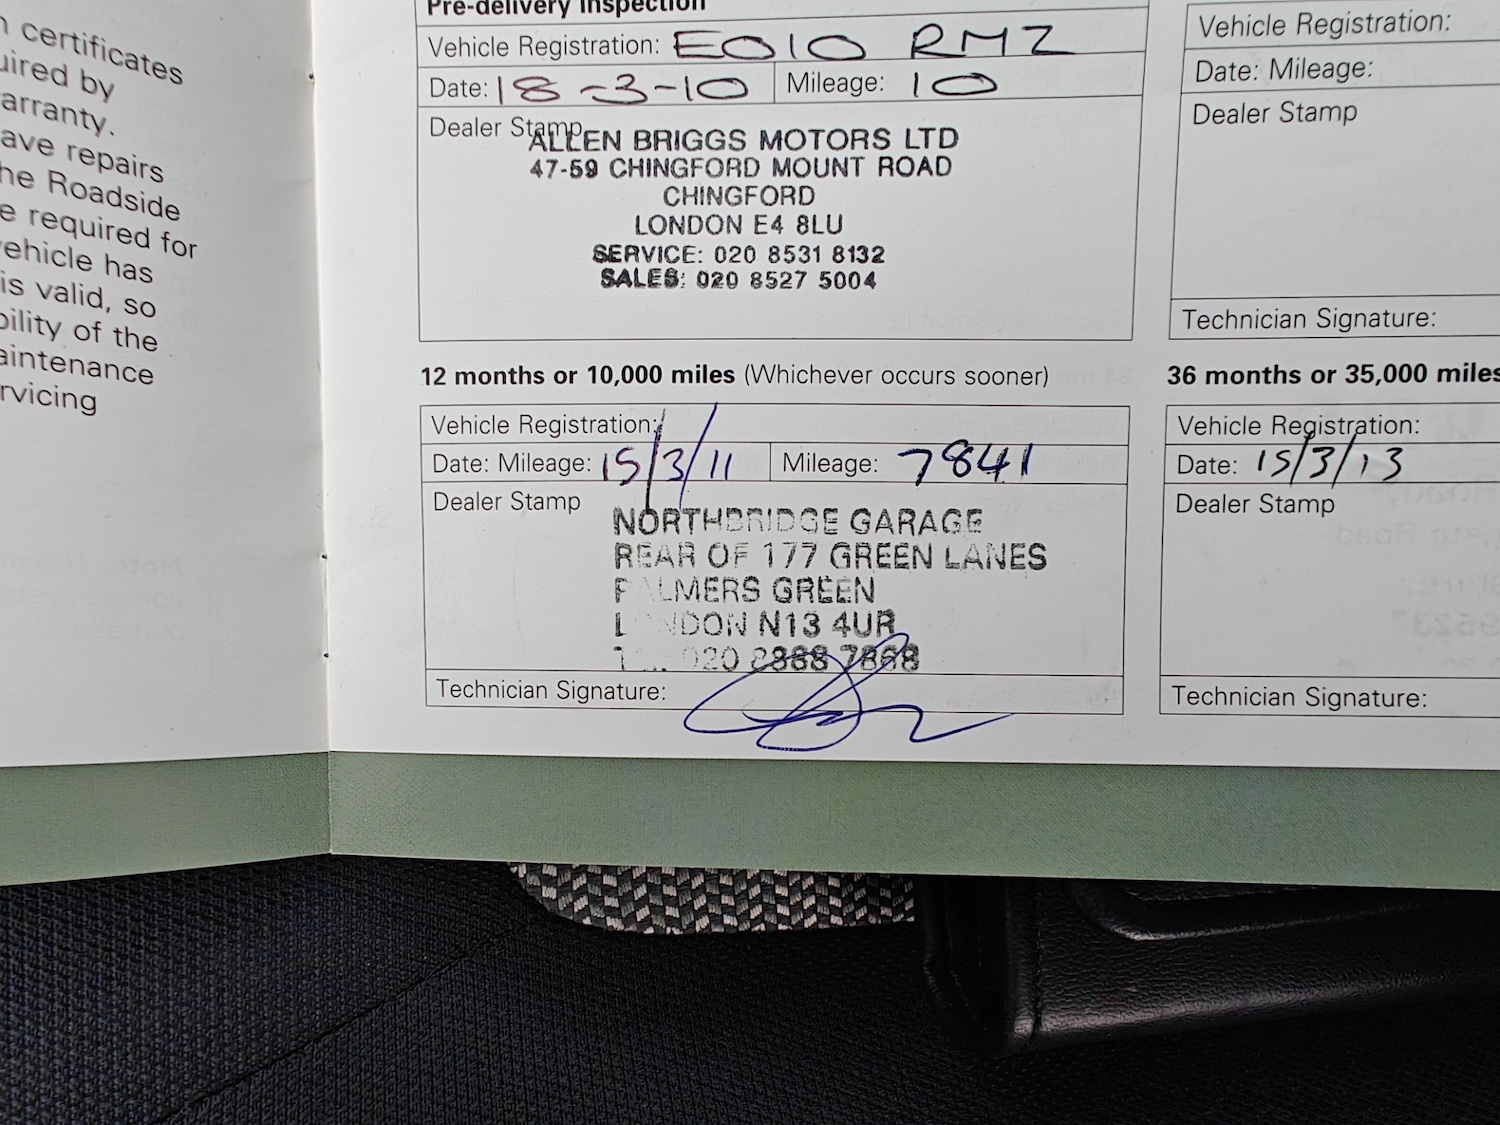 certificates
uired by
arranty.
ave repairs
he Roadside
e required for
vehicle has
is valid, so
bility of the
aintenance
rvicing
Pre-delivery Inspection
Vehicle Registration: EO10 RMZ
Date: 18-3-10 Mileage: 10
Dealer Stamp
ALLEN BRIGGS MOTORS LTD
47-59 CHINGFORD MOUNT ROAD
CHINGFORD
LONDON E4 8LU
SERVICE: 020 8531 8132
SALES: 020 8527 5004
12 months or 10,000 miles (Whichever occurs sooner)
Vehicle Registration:
Date: Mileage: 15/3/11 Mileage: 7841
Dealer Stamp
NORTHBRIDGE GARAGE
REAR OF 177 GREEN LANES
PALMERS GREEN
LONDON N13 4UR
020 8888 7868
Technician Signature:
Vehicle Registration:
Date: Mileage:
Dealer Stamp
Technician Signature:
36 months or 35,000 miles
Vehicle Registration:
Date: 15/3/13
Dealer Stamp
Technician Signature: